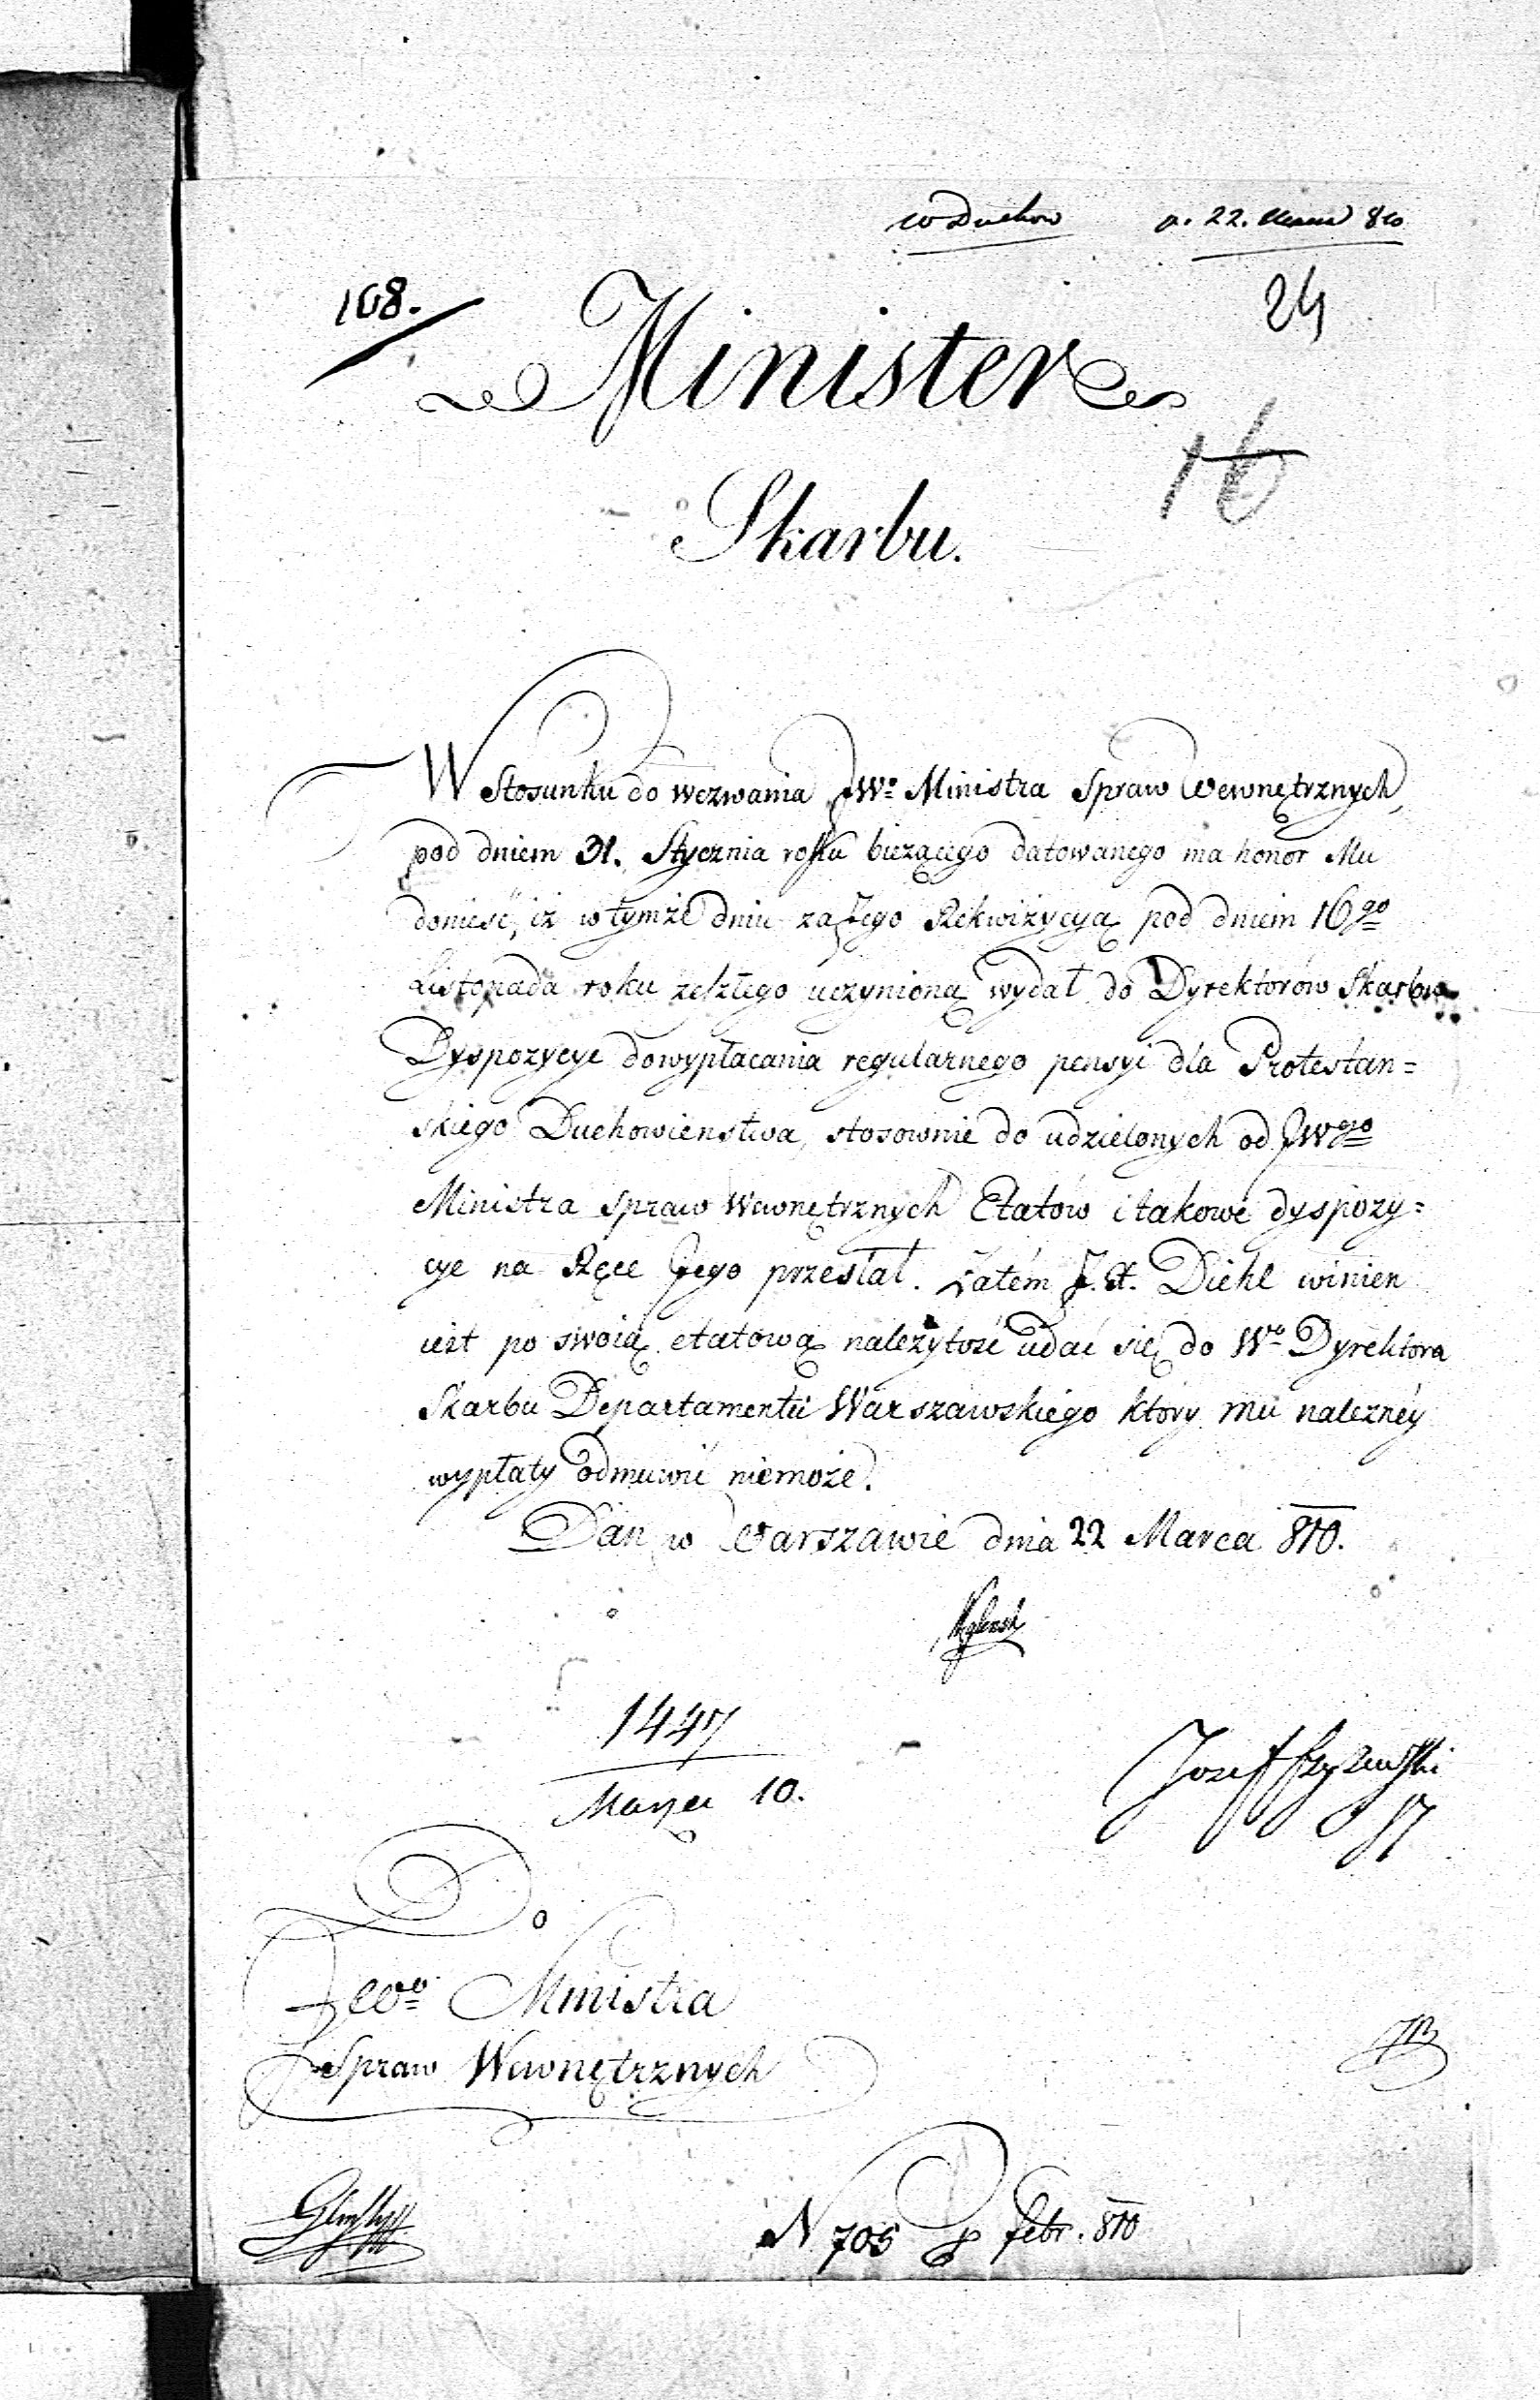 W Duchow p. 22. Marca 810
24
168.
Minister
16
Skarbu.
W Stosunku do wezwania JWo Ministra Spraw Wewnętrznych,
pod dniem 31. Stycznia roku bieżącego datowanego ma honor Mu
donieść, iż w tymże dniu za Jego Rekwizycyą pod dniem 16go
Listopada roku zeszłego uczynioną wydał do Dyrektorów Skarbu
Dyspozycye do wypłacania regularnego pensyi dla Protestan=
skiego Duchowienstwa, stosownie do udzielonych od JWgo
Ministra Spraw Wewnętrznych Etatów i takowe dyspozy=
cye na Ręce Jego przesłał. Zatém J. X. Diehl winien
iest po swoią etatową należytość udać się do Wo Dyrektora
Skarbu Departamentu Warszawskiego który mu należnéy
wypłaty odmuwić niemoże.
Dan w Warszawie dnia 22 Marca 810.
1447
Marca 10.
Jozef
Do
JWo Ministra
Spraw Wewnętrznych
N 705 p febr. 810